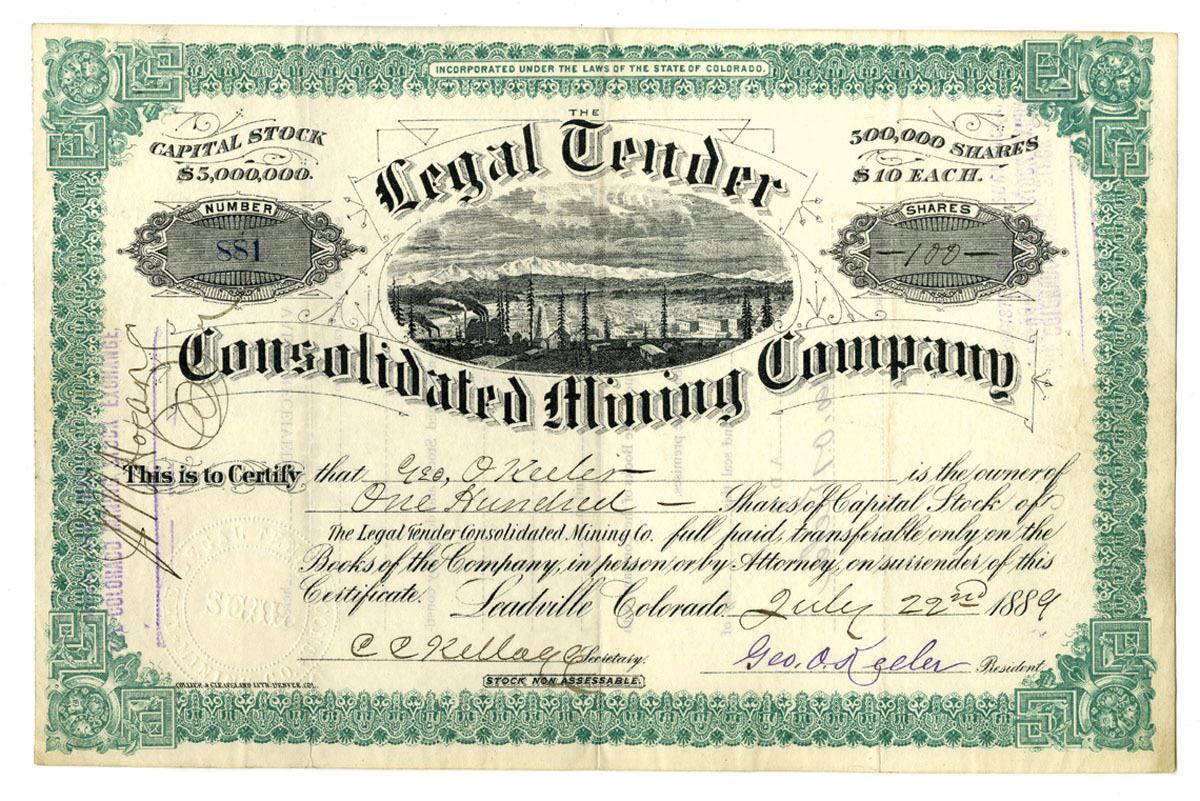 INCORPORATED UNDER THE LAWS OF THE STATE OF COLORADO.
CAPITAL STOCK
$5,000,000.
THE
Legal Tender
500,000 SHARES
$10 EACH.
NUMBER
881
SHARES
—100—
Consolidated Mining Company
This is to Certify that Geo. O Keeler is the owner of
One Hundred — Shares of Capital Stock of
The Legal Tender Consolidated Mining Co. full paid, transferable only on the
Books of the Company, in person or by Attorney, on surrender of this
Certificate. Leadville Colorado July 22nd 1889
C C Kellogg Secretary. Geo. O. Keeler President.
STOCK NON ASSESSABLE.
COLLIER & CLEAVELAND LITH. DENVER, COL.
SEAL
COLORADO MINING STOCK EXCHANGE,